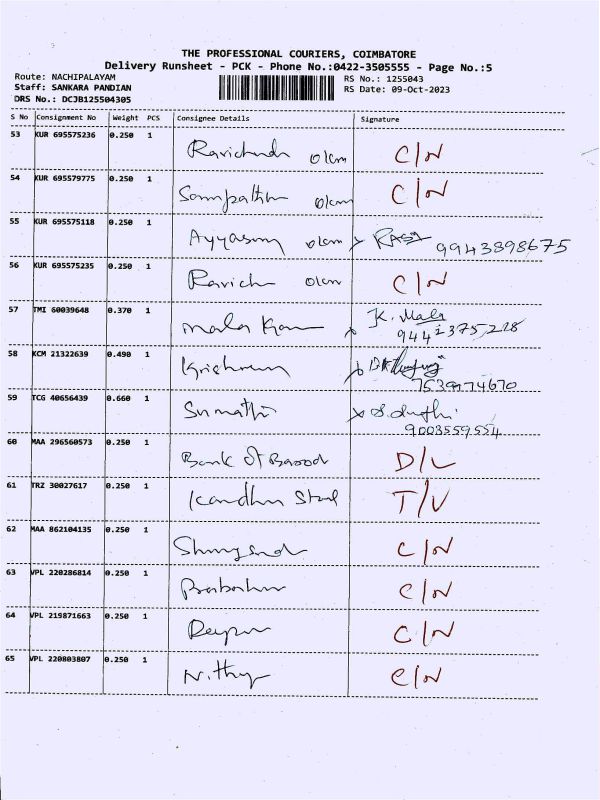 THE PROFESSIONAL COURIERS, COIMBATORE
Delivery Runsheet - PCK - Phone No.:0422-3505555 - Page No.:5
Route: NACHIPALAYAM RS No.: 1255043
Staff: SANKARA PANDIAN RS Date: 09-Oct-2023
DRS No.: DCJB125504305
S No Consignment No Weight PCS Consignee Details Signature
53 KUR 695575236 0.250 1
C/N
54 KUR 695579775 0.250 1
C/N
55 KUR 695575118 0.250 1
Ayyasamy 9943898675
56 KUR 695575235 0.250 1
Ravich C/N
57 TMI 60039648 0.370 1
K. Mala
58 KCM 21322639 0.490 1
59 TCG 40656439 0.660 1
Sumathi
9003559554
60 MAA 296560573 0.250 1
Bank Of Barod D/L
61 TRZ 30027617 0.250 1
T/V
62 MAA 862104135 0.250 1
C/N
63 VPL 220286814 0.250 1
C/N
64 VPL 219871663 0.250 1
C/N
65 VPL 220803807 0.250 1
N.thy C/N